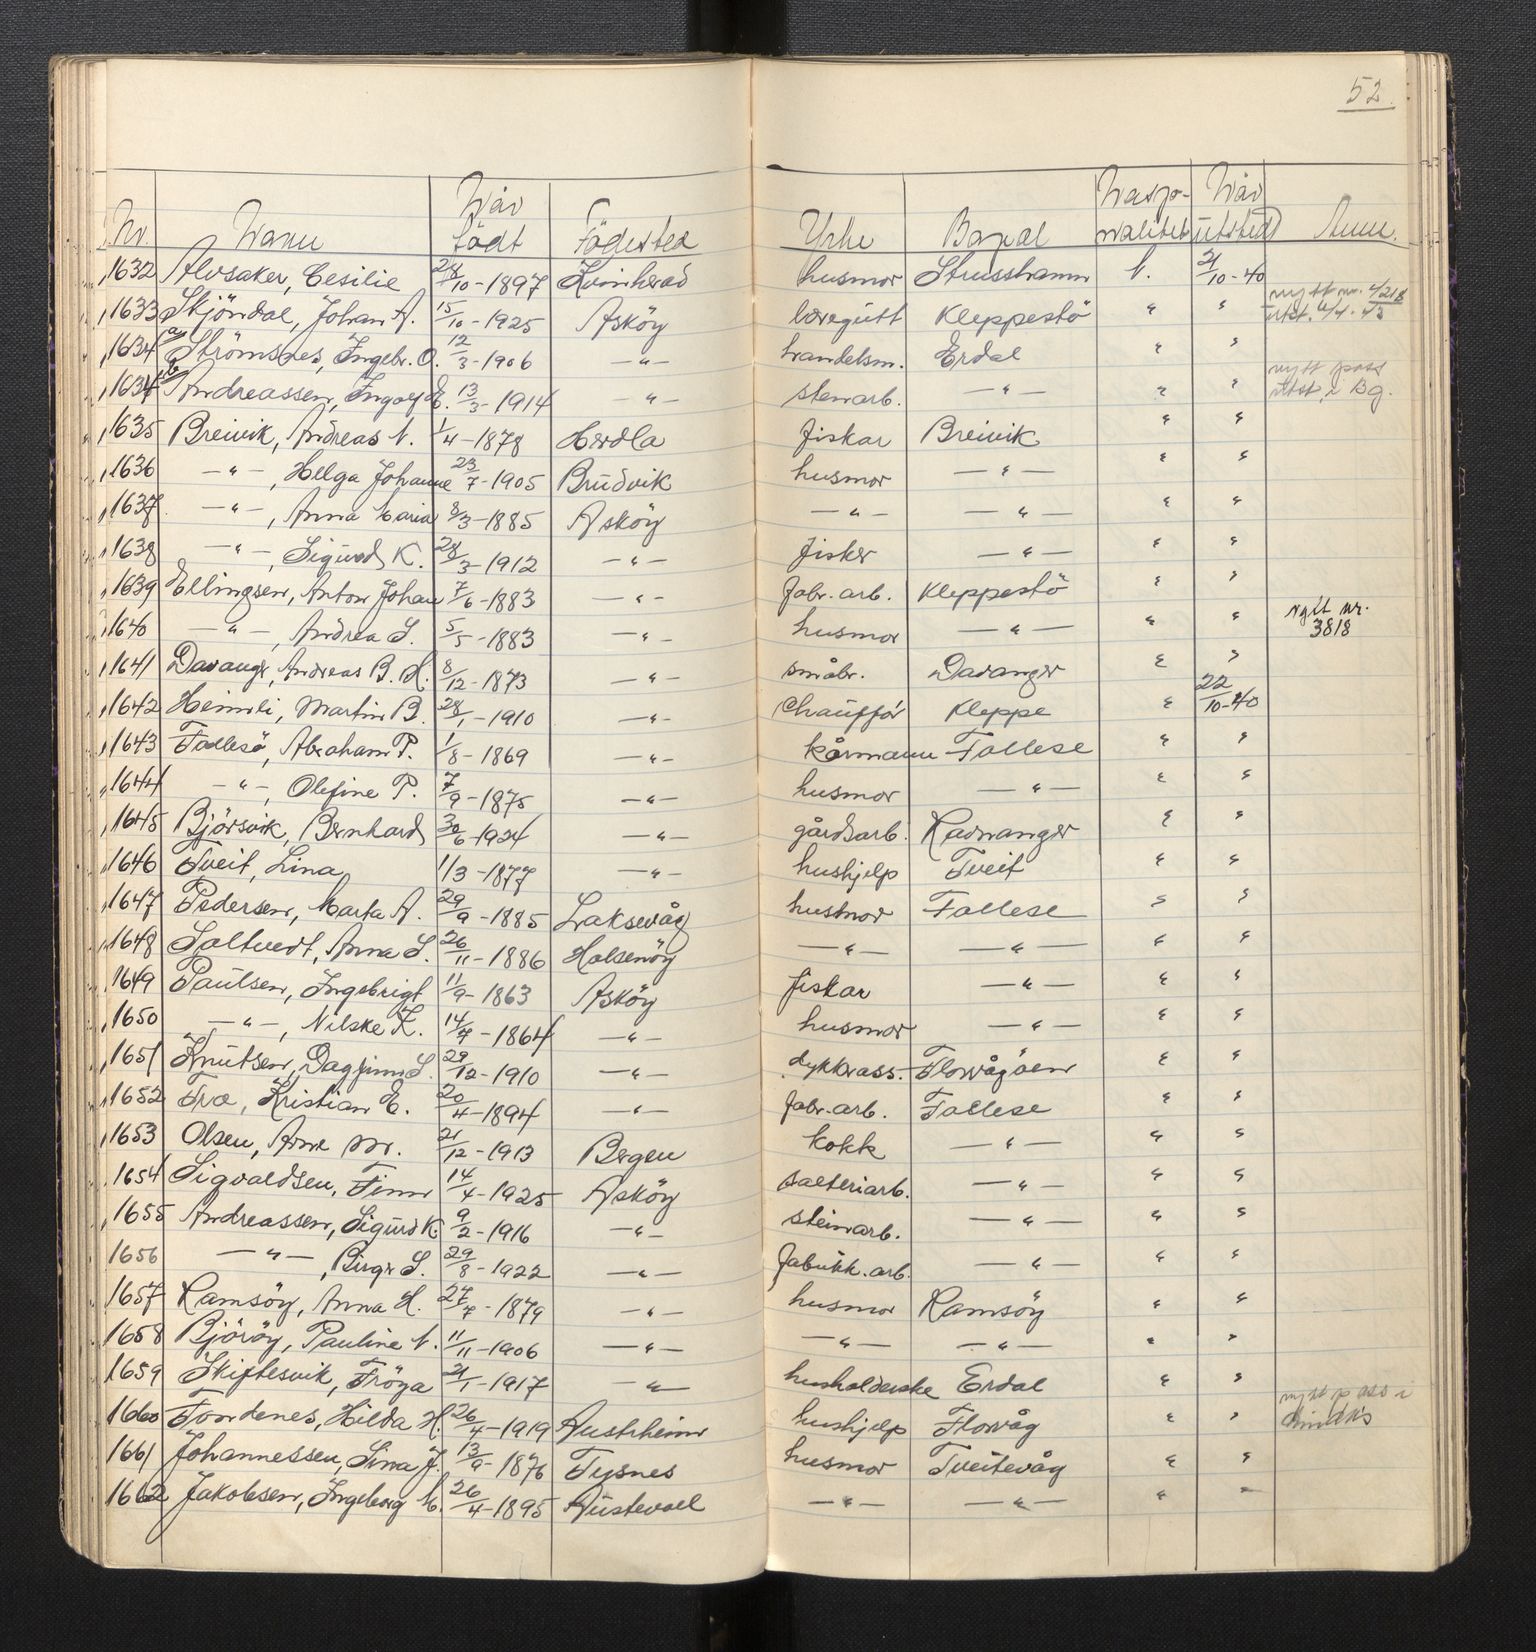 52.
Nr. Namn Når födt Födested Yrke Bopæl Nasjonalitet Når utsted Anm.
1632 Alvsaker, Cesilie 28/10-1897 Kvinherad husmor Strusshamn N. 21/10-40
1633 Skjöndal, Johan A. 15/10-1925 Asköy læregutt Kleppestö " " nytt nr. 4218 utst. 4/4-43
1634 a Strömsnes, Ingebr. O. 12/3-1906 —"— handelsm. Erdal " "
1634 b Andreassen, Ingolf E. 13/3-1914 —"— steinarb. —"— " " nytt pass utst. i Bg.
1635 Breivik, Andreas N. 1/4-1878 Herdla fiskar Breivik " "
1636 —"—, Helga Johanne 23/7-1905 Brudvik husmor —"— " "
1637 —"—, Anna Maria 8/3-1885 Asköy —"— —"— " "
1638 —"—, Sigurd K. 28/3-1912 —"— fisker —"— " "
1639 Ellingsen, Anton Johan 7/6-1883 —"— fabr. arb. Kleppestö " "
1640 —"—, Andrea S. 5/5-1883 —"— husmor —"— " " nytt nr. 3818
1641 Davanger, Andreas B. H. 8/12-1873 —"— småbr. Davanger " "
1642 Heimli, Martin B. 28/1-1910 —"— Chauffør Kleppe " 22/10-40
1643 Follesö, Abraham P. 1/8-1869 —"— kårmann Follese " "
1644 —"—, Olefine P. 7/9-1875 —"— husmor —"— " "
1645 Bjørsvik, Bernhard 30/6-1924 —"— gårdsarb. Ravnanger " "
1646 Tveit, Lina 1/3-1877 —"— hushjelp Tveit " "
1647 Pedersen, Marta A. 29/9-1885 Laksevåg husmor Follese " "
1648 Saltvedt, Anna S. 26/11-1886 Holsenöy —"— —"— " "
1649 Paulsen, Ingebrigt 11/9-1863 Asköy fiskar —"— " "
1650 —"—, Nilske K. 14/7-1864 —"— husmor —"— " "
1651 Knutsen, Dagfinn S. 29/12-1910 —"— dykkrass. Florvågöen " "
1652 Træ, Kristian E. 20/4-1894 —"— fabr. arb. Follese " "
1653 Olsen, Arne M. 21/12-1913 Bergen kokk —"— " "
1654 Sigvaldsen, Finn 14/4-1925 Asköy salteriarb. —"— " "
1655 Andreassen, Sigurd K. 9/2-1916 —"— steinarb. —"— " "
1656 —"—, Birger S. 29/8-1922 —"— fabrikk. arb. —"— " "
1657 Ramsöy, Anna H. 27/7-1879 —"— husmor Ramsöy " "
1658 Björöy, Pauline N. 11/11-1906 —"— —"— —"— " "
1659 Skiftesvik, Fröya 21/1-1917 —"— husholderske Erdal " "
1660 Toordenes, Hilda H. 26/4-1919 Austrheim hushjelp Florvåg " " nytt pass i Lindås
1661 Johannessen, Lina J. 13/9-1876 Tysnes husmor Tveitevåg " "
1662 Jakobsen, Ingeborg M. 26/4-1895 Austevoll —"— —"— " "